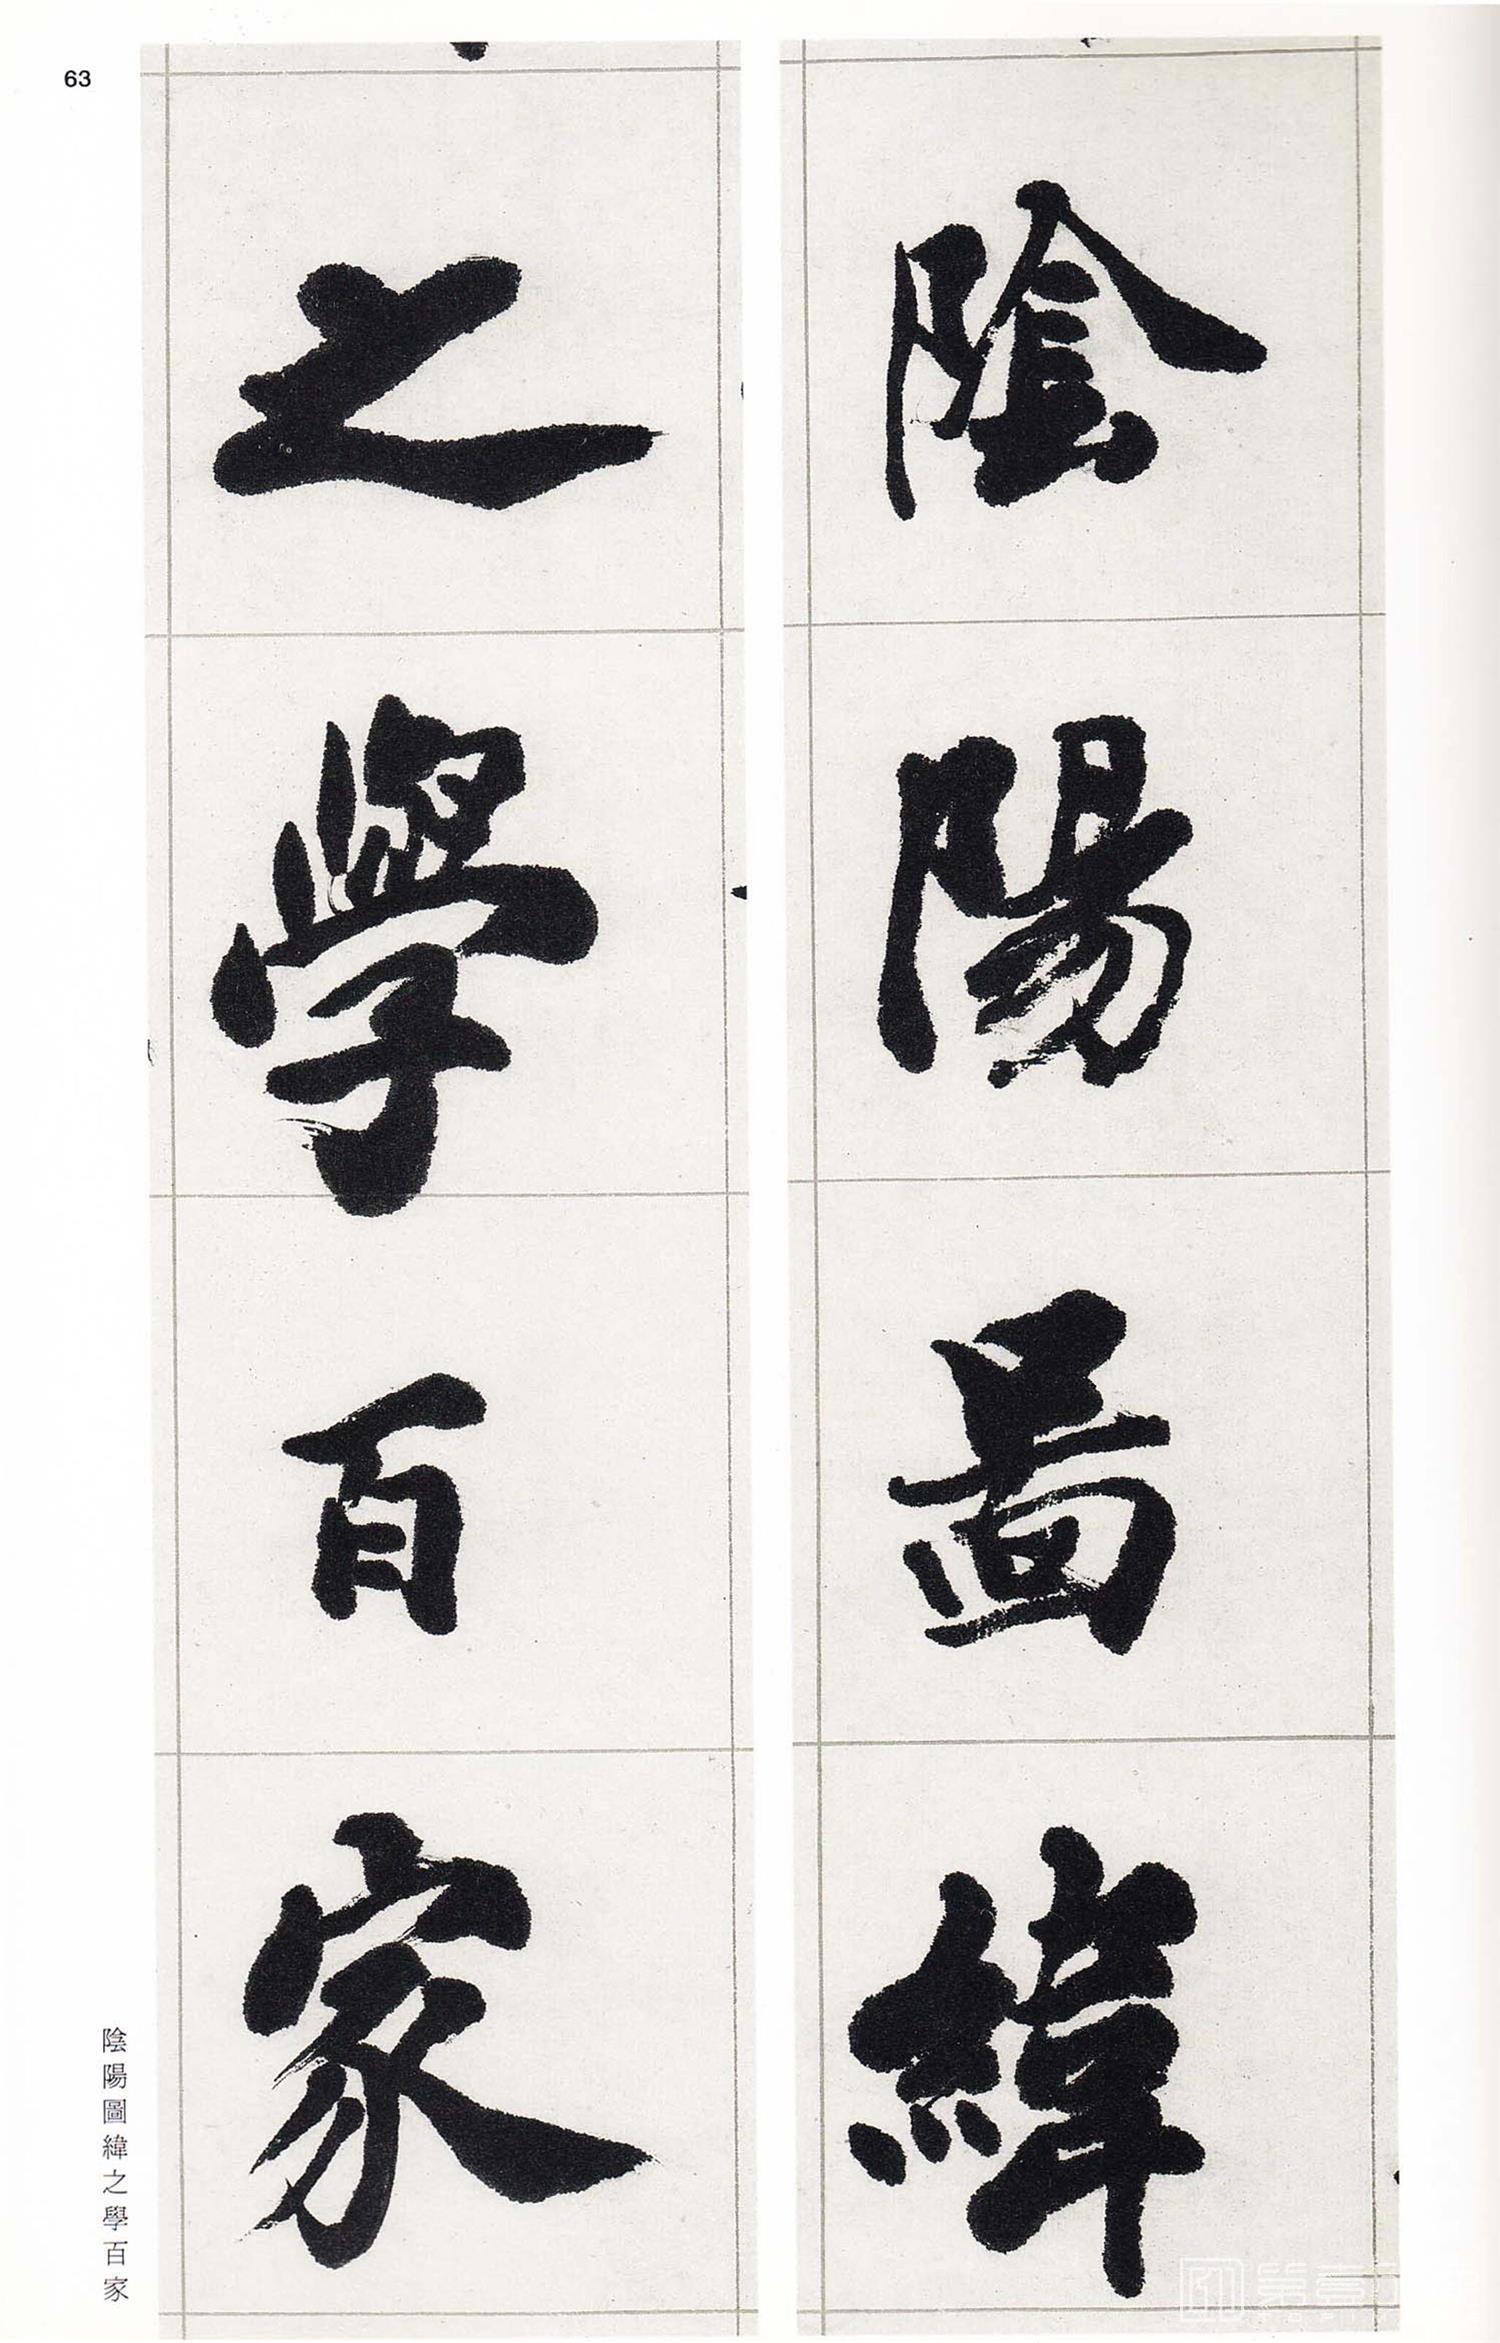 63
陰陽圖緯
之學百家
陰陽圖緯之學百家